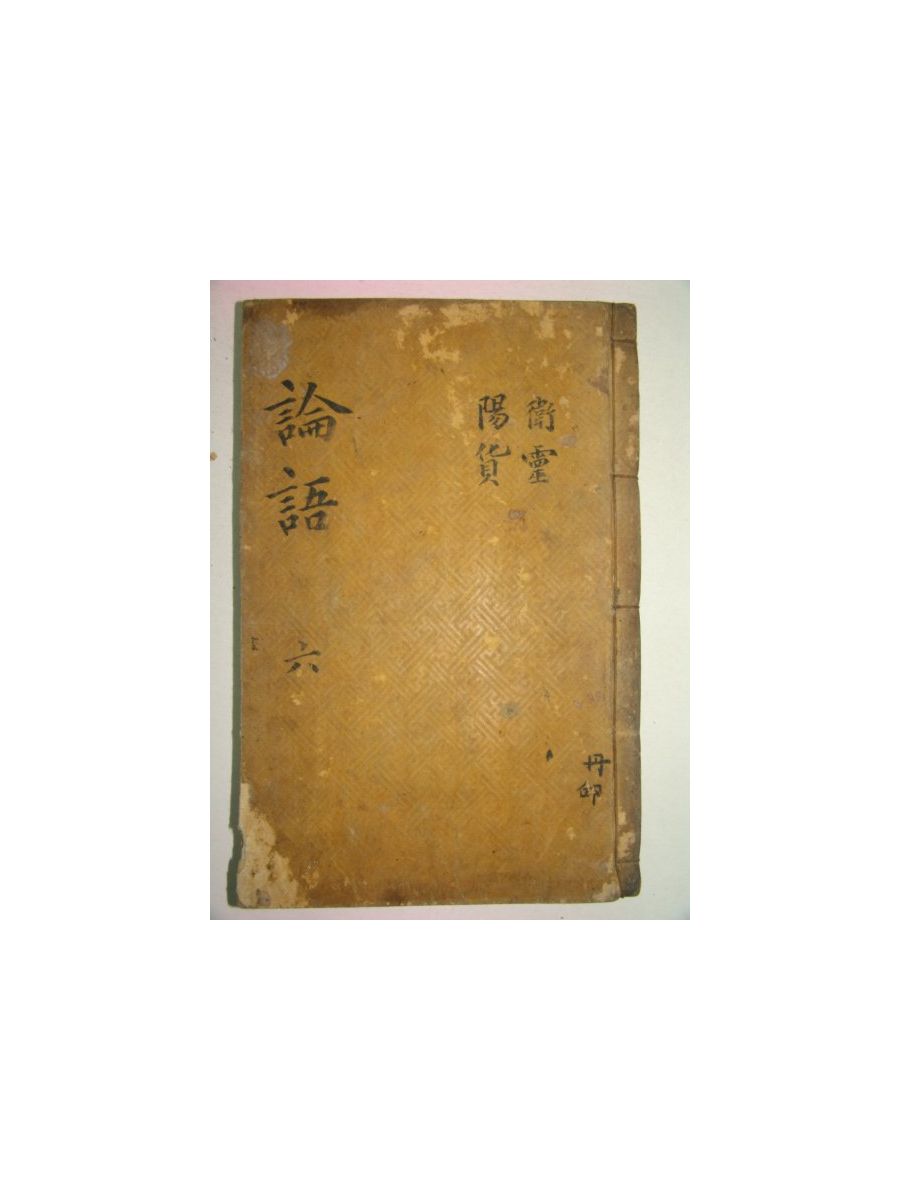 衛靈
陽貨
論語 六
丹卵